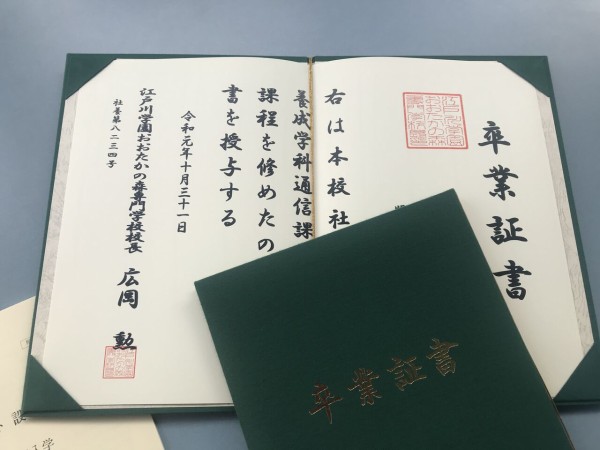 卒業証書
右は本校社
養成学科通信課
課程を修めたの
書を授与する
令和元年十月三十一日
江戸川学園おおたかの森専門学校校長 広岡 勲
社養第八二三四号
卒業証書